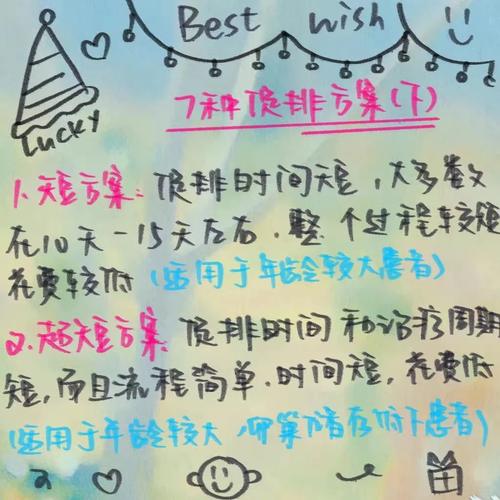 Best wish
Lucky
7种促排方案(下)
1.短方案:促排时间短,大多数
在10天-15天左右.整个过程较短
花费较低(适用于年龄较大患者)
2.超短方案.促排时间和治疗周期
短,而且流程简单.时间短,花费低
(适用于年龄较大,卵巢储存低下患者)